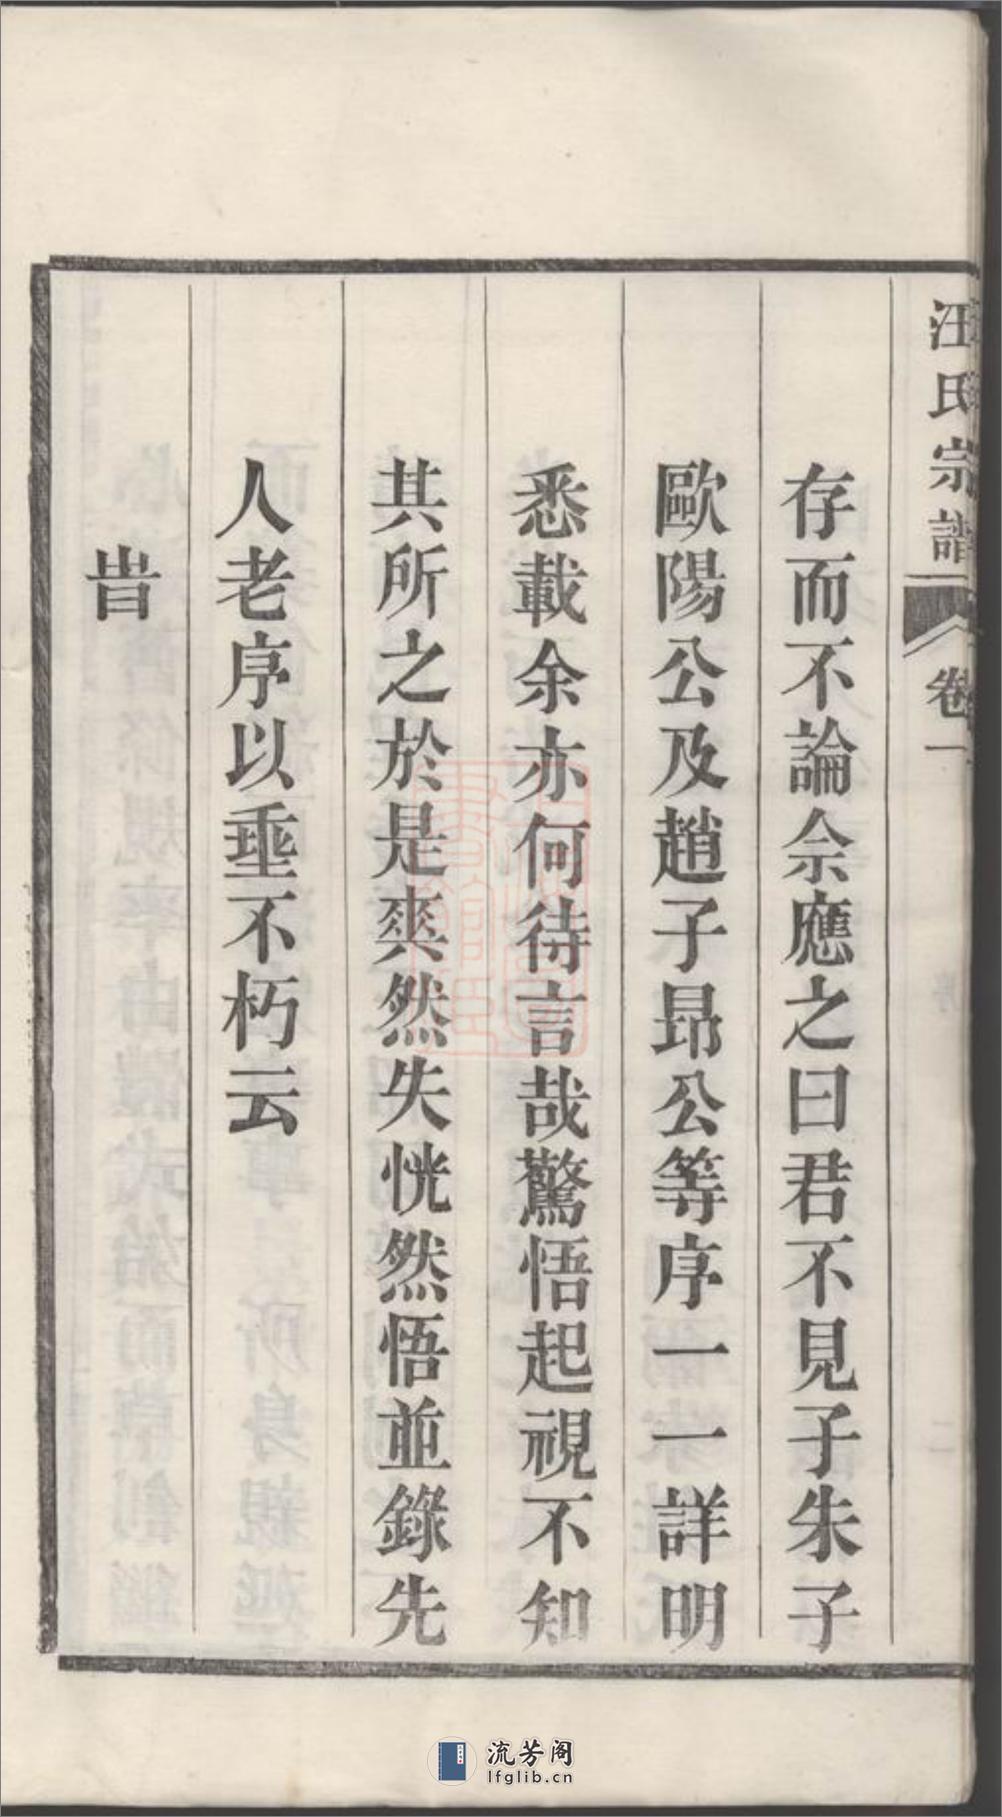 汪氏宗譜 卷一
存而不論余應之曰君不見子朱子
歐陽公及趙子昂公等序一一詳明
悉載余亦何待言哉驚悟起視不知
其所之於是爽然失恍然悟並錄先
人老序以垂不朽云
旹
流芳阁
lfglib.cn